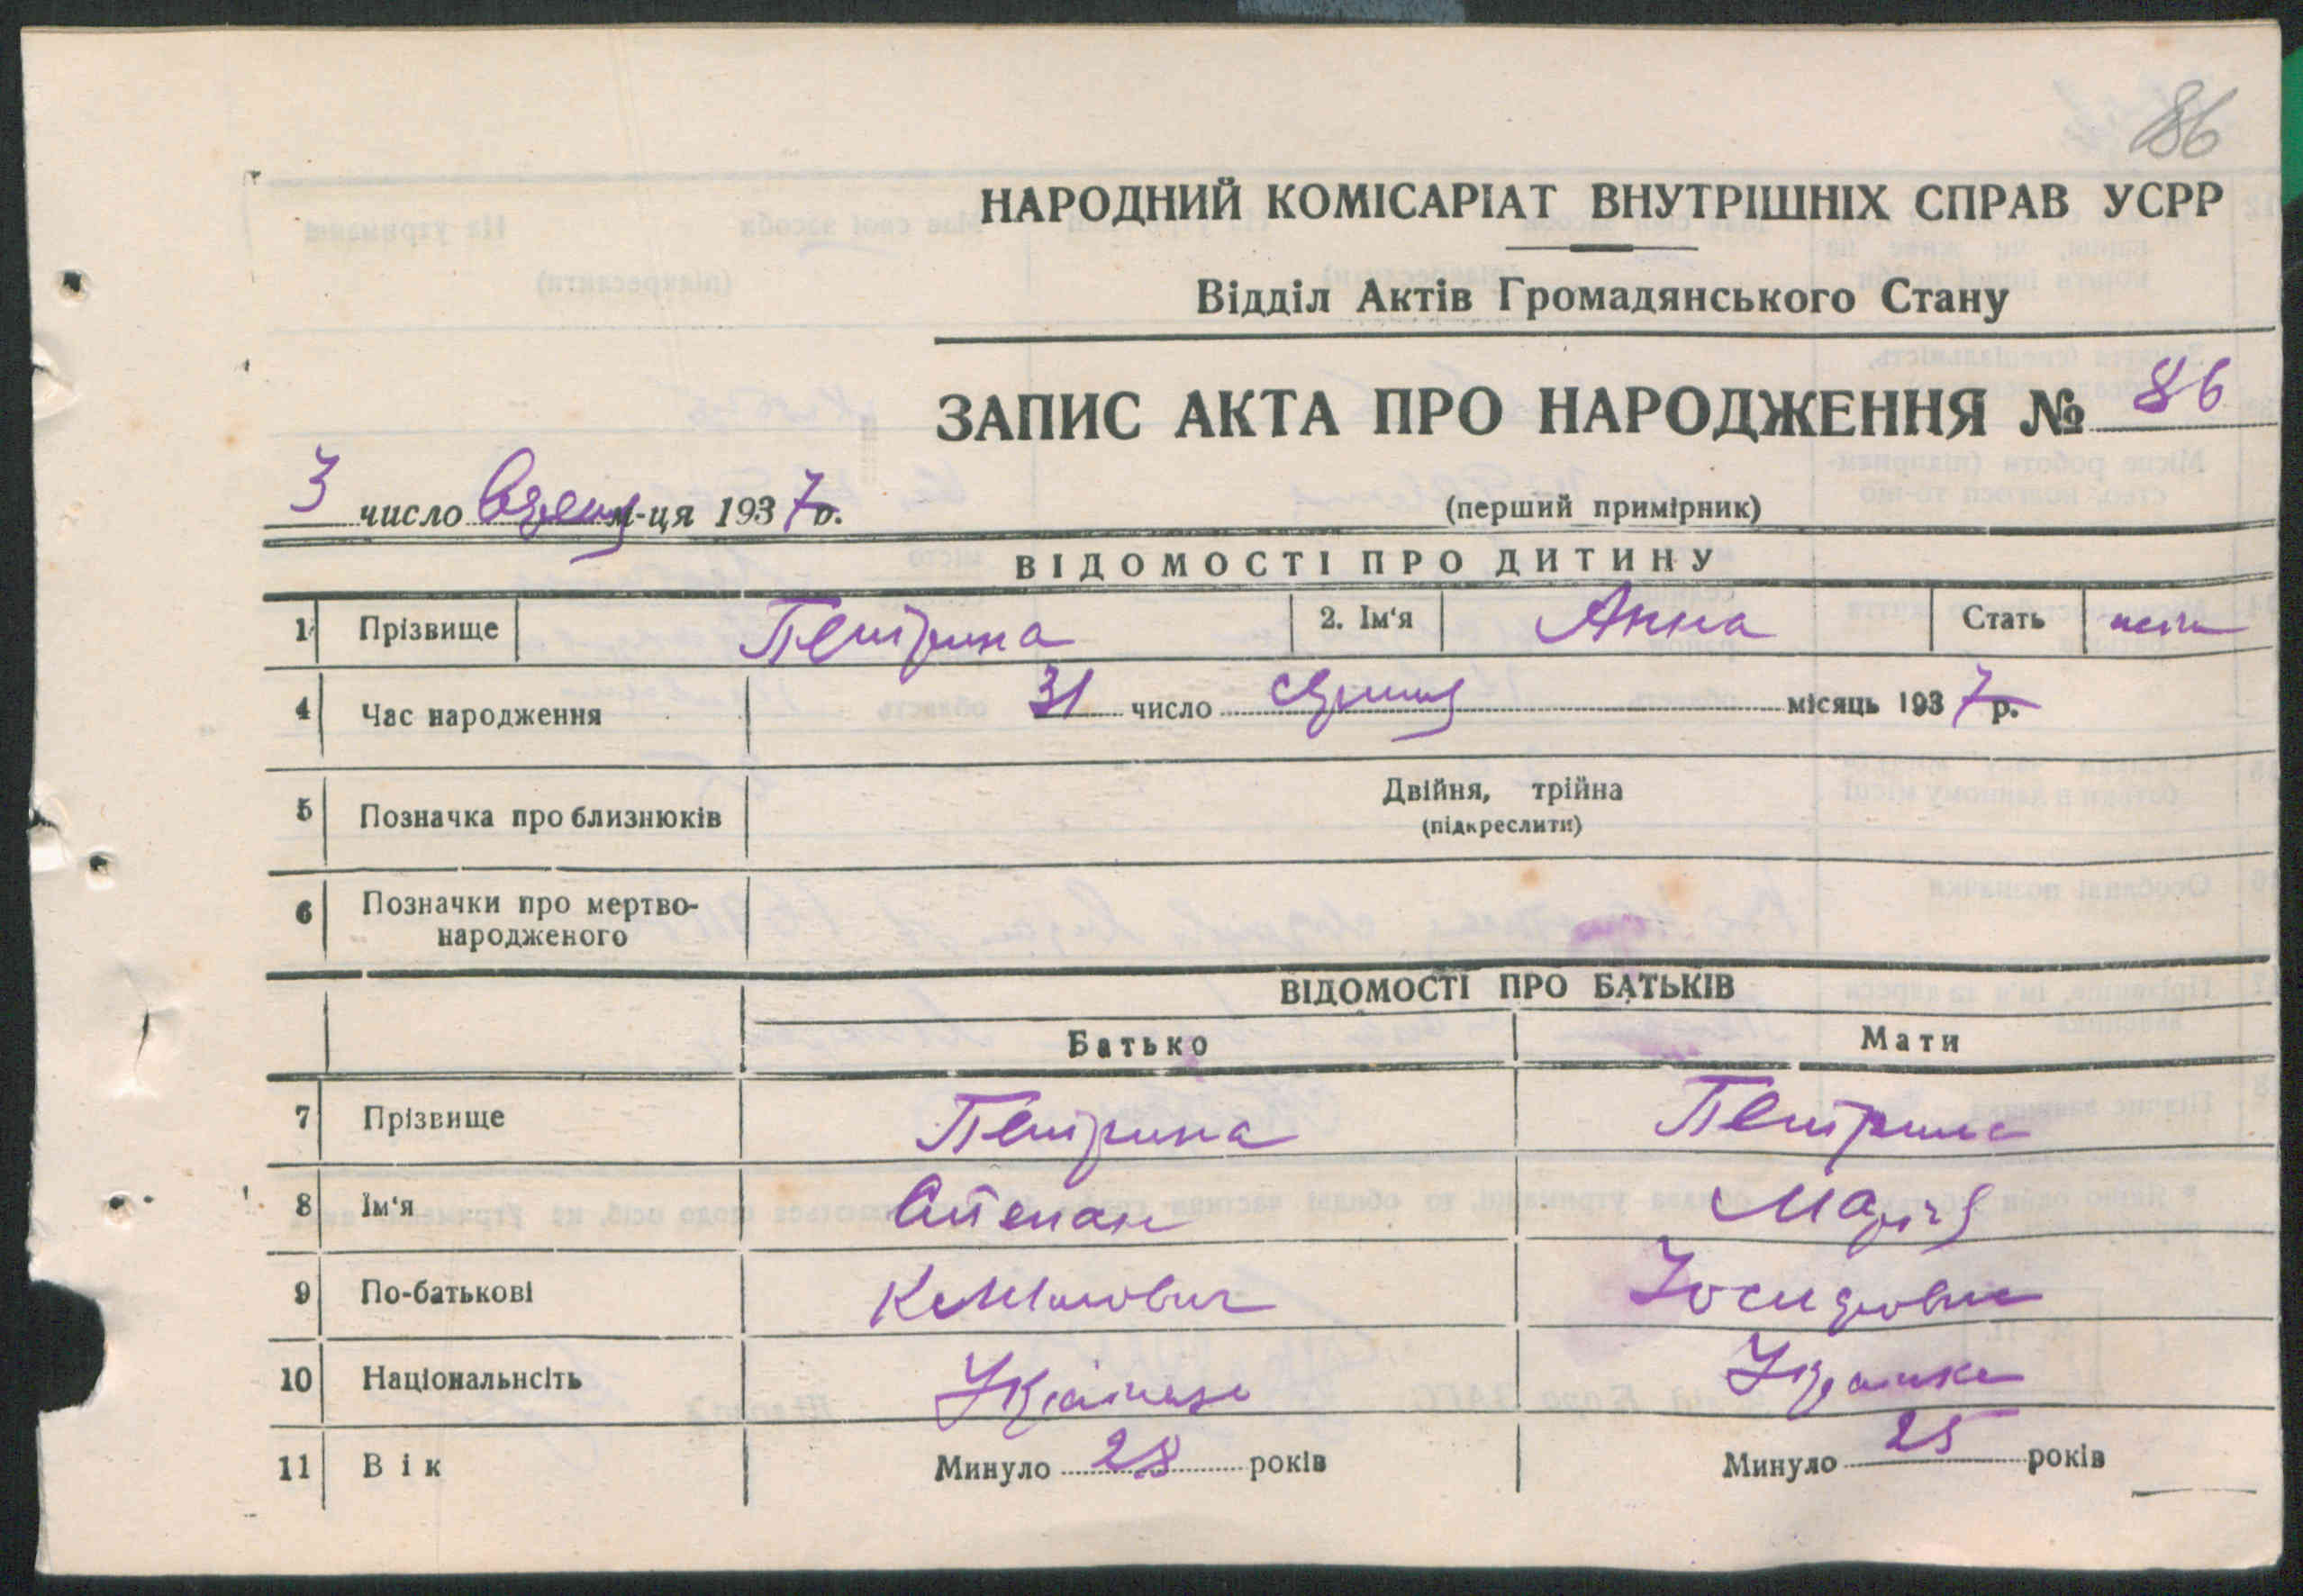 86
НАРОДНИЙ КОМІСАРІАТ ВНУТРІШНІХ СПРАВ УСРР
Відділ Актів Громадянського Стану
ЗАПИС АКТА ПРО НАРОДЖЕННЯ № 86
3 число м-ця 1937 р.
(перший примірник)
ВІДОМОСТІ ПРО ДИТИНУ
1 Прізвище Петрина 2. Ім'я Анна Стать
4 Час народження 31 число серпня місяць 1937 р.
5 Позначка про близнюків Двійня, трійна
(підкреслити)
6 Позначки про мертво-
народженого
ВІДОМОСТІ ПРО БАТЬКІВ
Батько Мати
7 Прізвище Петрина Петрина
8 Ім'я Степан Марія
9 По-батькові
10 Національнсіть
11 Вік Минуло 28 років Минуло 25 років